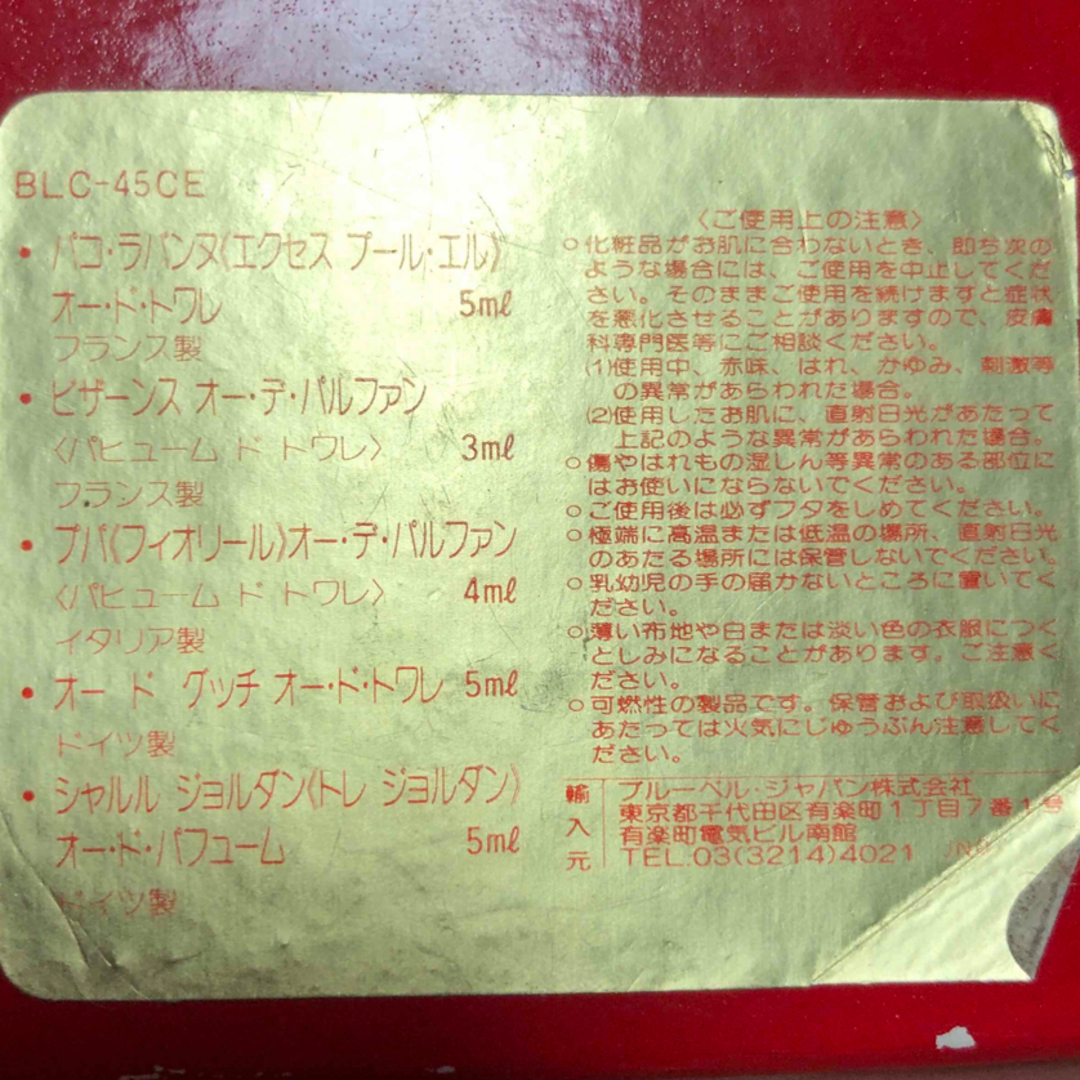 BLC-45CE
• パコ・ラバンヌ〈エクセス プール・エル〉
オー・ド・トワレ 5ml
フランス製
• ビザーンス オー・デ・パルファン
〈パヒューム ド トワレ〉 3ml
フランス製
• プパ〈フィオリール〉オー・デ・パルファン
〈パヒューム ド トワレ〉 4ml
イタリア製
• オー ド グッチ オー・ド・トワレ 5ml
ドイツ製
• シャルル ジョルダン〈トレ ジョルダン〉
オー・ド・パフューム 5ml
ドイツ製
〈ご使用上の注意〉
○化粧品がお肌に合わないとき、即ち次の
ような場合には、ご使用を中止してくだ
さい。そのままご使用を続けますと症状
を悪化させることがありますので、皮膚
科専門医等にご相談ください。
(1)使用中、赤味、はれ、かゆみ、刺激等
の異常があらわれた場合。
(2)使用したお肌に、直射日光があたって
上記のような異常があらわれた場合。
○傷やはれもの湿しん等異常のある部位に
はお使いにならないでください。
○ご使用後は必ずフタをしめてください。
○極端に高温または低温の場所、直射日光
のあたる場所には保管しないでください。
○乳幼児の手の届かないところに置いてく
ださい。
○薄い布地や白または淡い色の衣服につく
としみになることがあります。ご注意く
ださい。
○可燃性の製品です。保管および取扱いに
あたっては火気にじゅうぶん注意してく
ださい。
輸入元
ブルーベル・ジャパン株式会社
東京都千代田区有楽町1丁目7番1号
有楽町電気ビル南館
TEL.03(3214)4021